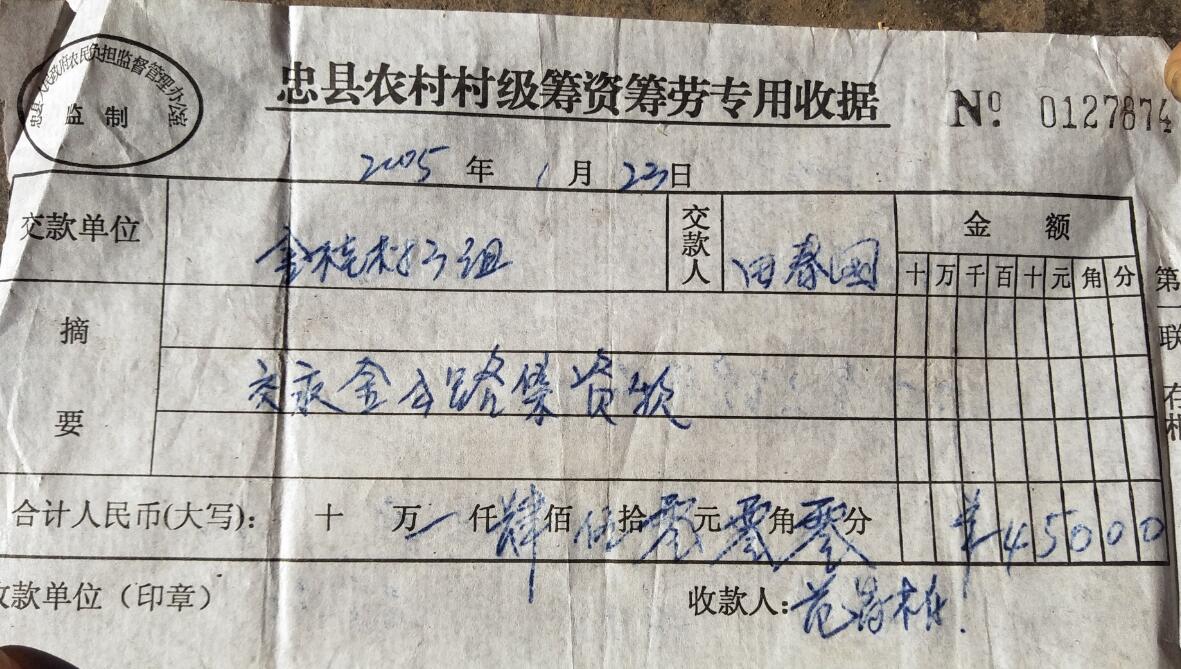 忠县人民政府农民负担监督管理办公室
监制
忠县农村村级筹资筹劳专用收据
№ 0127874
2005年1月23日
交款单位
交款人 田春国
金额
十万千百十元角分
摘要
交 金 路集资款
合计人民币(大写): 十 万 仟肆佰伍拾零元零角零分 ¥45000
收款单位（印章）
收款人:范
第 联 存根